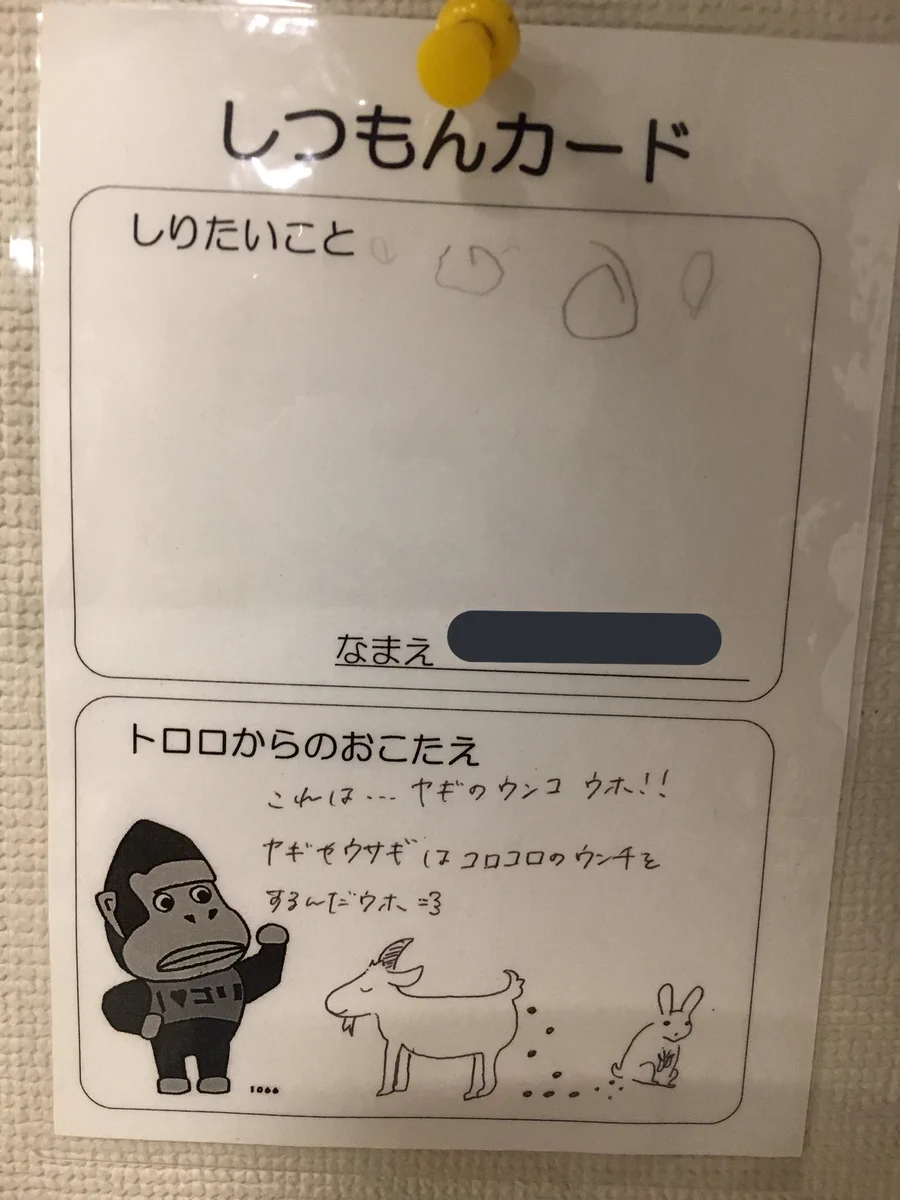 しつもんカード
しりたいこと
なまえ
トロロからのおこたえ
これは… ヤギのウンコ ウホ!!
ヤギやウサギはコロコロのウンチを
するんだウホ =3
I♥ゴリ
1066